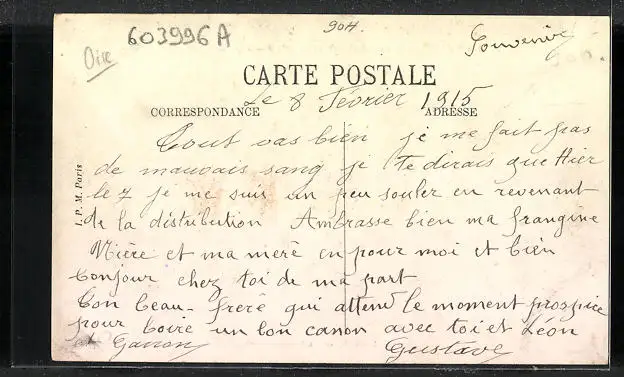 904.
Souvenir
Oise
603996A
CARTE POSTALE
Le 8 Février 1915
CORRESPONDANCE
ADRESSE
Tout vas bien je me fait pas
de mauvais sang je te dirais que Hier
le 7 je me suis un peu souler en revenant
de la distribution Ambrasse bien ma frangine
et ma merè en pour moi et bien
bonjour chez toi de ma part
Ton beau-frerè qui attend le moment prospice
pour boire un bon canon avec toi et Léon
Gustave
I. P. M. Paris